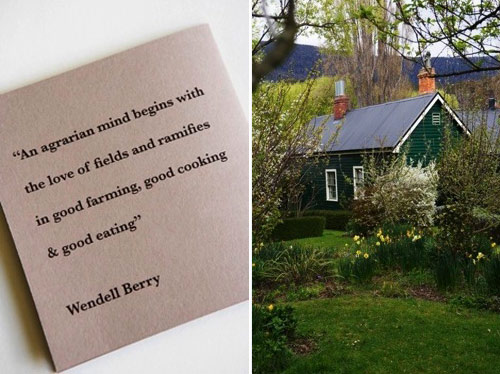 “An agrarian mind begins with
the love of fields and ramifies
in good farming, good cooking
& good eating”
Wendell Berry